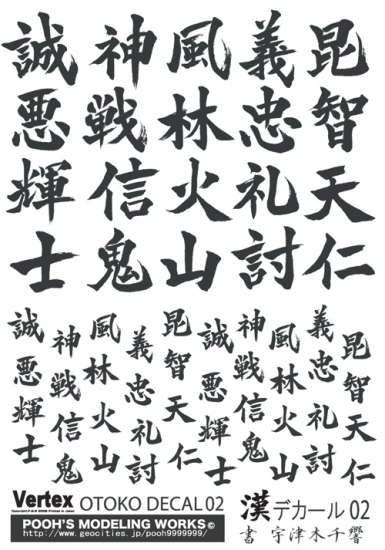 昆智天仁
義忠礼討
風林火山
神戦信鬼
誠悪輝士
昆智天仁
義忠礼討
風林火山
神戦信鬼
誠悪輝士
昆智天仁
義忠礼討
風林火山
神戦信鬼
誠悪輝士
Vertex OTOKO DECAL 02
POOH'S MODELING WORKS©
http://www.geocities.jp/pooh9999999/
漢デカール 02
書 宇津木千響